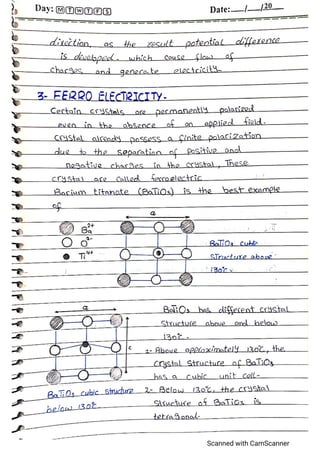 Day: M T W T F S
Date: __/__/20__
direction, as the result potential difference
is developed. which cause flow of
charges and generate electricity.
3- FERRO ELECTRICITY.
Certain crystals are permanently polarized
even in the absence of an applied field.
crystal already possess a finite polarization
due to the separation of positive and
negative charges in the crystal, These
crystal are called ferroelectric
Barium titanate (BaTiO3) is the best example
of
a
Ba2+
O2-
Ti4+
BaTiO3 cubic
structure above
130c.
a
c
BaTiO3 cubic structure
below 130c
BaTiO3 has different crystal
structure above and below
130c.
1- Above approximately 130c, the
crystal structure of BaTiO3
has a cubic unit cell-
2- Below 130c, the crystal
structure of BaTiO3 is
tetragonal-
Scanned with CamScanner